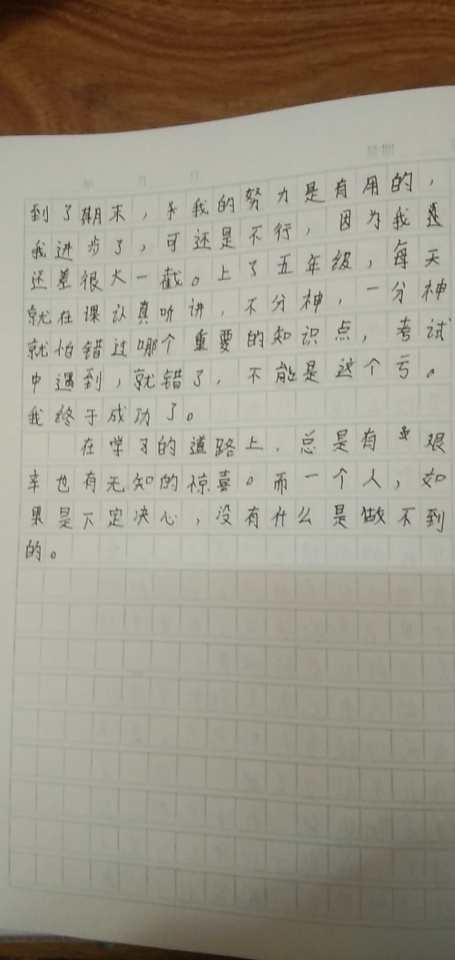 年 月 日 星期
到了期末，我的努力是有用的，
我进步了，可还是不行，因为我
还差很大一截。上了五年级，每天
就在课认真听讲，不分神，一分神
就怕错过哪个重要的知识点，考试
中遇到，就错了，不能是这个亏。
我终于成功了。
在学习的道路上，总是有艰
辛也有无知的惊喜。而一个人，如
果是下定决心，没有什么是做不到
的。